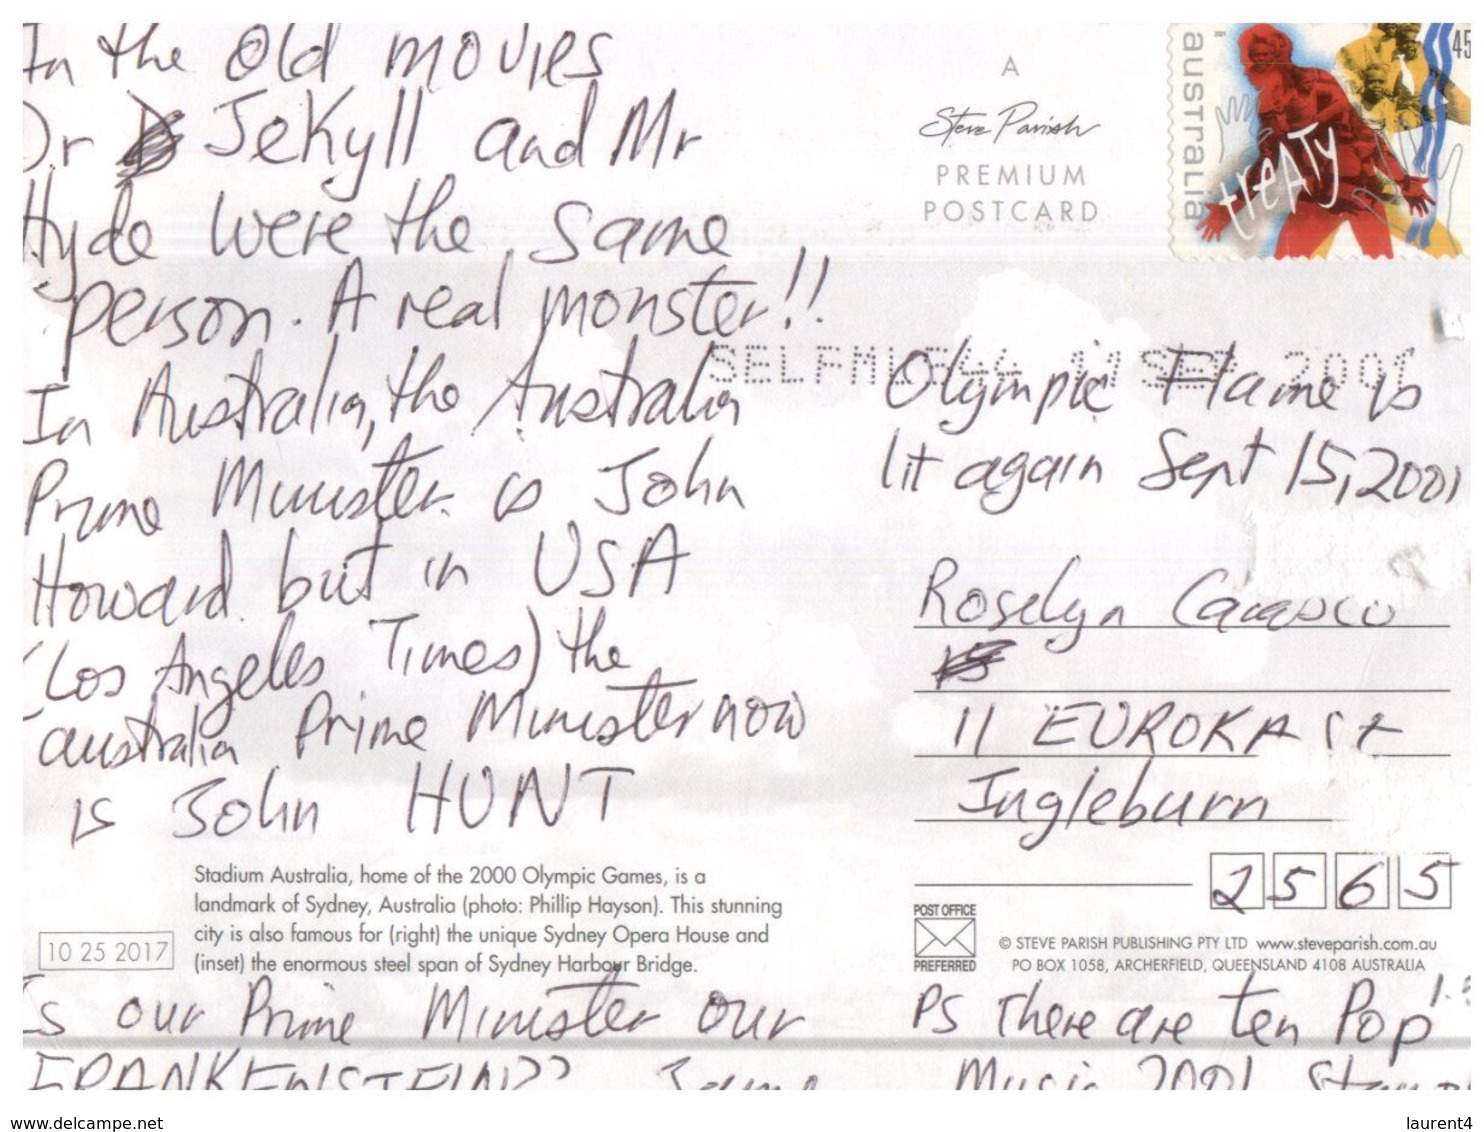 In the old movies
Dr Jekyll and Mr
Hyde were the same
person. A real monster!!
In Australia, the Australia
Prime Minister is John
Howard but in USA
(Los Angeles Times) the
australia Prime Minister now
is John HUNT
Stadium Australia, home of the 2000 Olympic Games, is a
landmark of Sydney, Australia (photo: Phillip Hayson). This stunning
city is also famous for (right) the unique Sydney Opera House and
(inset) the enormous steel span of Sydney Harbour Bridge.
10 25 2017
Is our Prime Minister our
FRANKENSTEIN?? Same
A
Steve Parish
PREMIUM
POSTCARD
australia
45
treaty
2001
Olympic Flame is
lit again Sept 15, 2001
Roselyn
11 EUROKA St
Ingleburn
2565
POST OFFICE
PREFERRED
© STEVE PARISH PUBLISHING PTY LTD www.steveparish.com.au
PO BOX 1058, ARCHERFIELD, QUEENSLAND 4108 AUSTRALIA
PS There are ten Pop
Music 2001
www.delcampe.net
laurent4